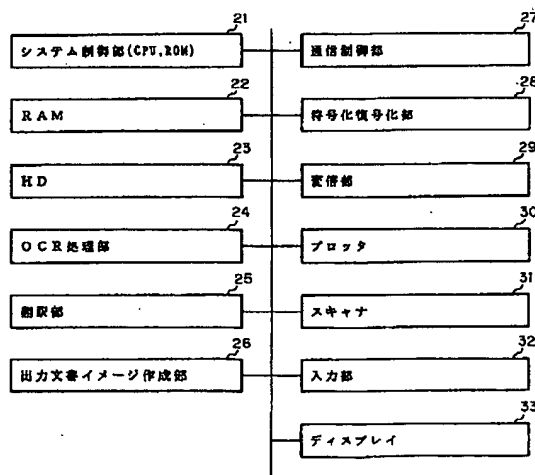 21
システム制御部(CPU,ROM)
22
RAM
23
HD
24
OCR処理部
25
翻訳部
26
出力文書イメージ作成部
27
通信制御部
28
符号化復号化部
29
変信部
30
プロッタ
31
スキャナ
32
入力部
33
ディスプレイ